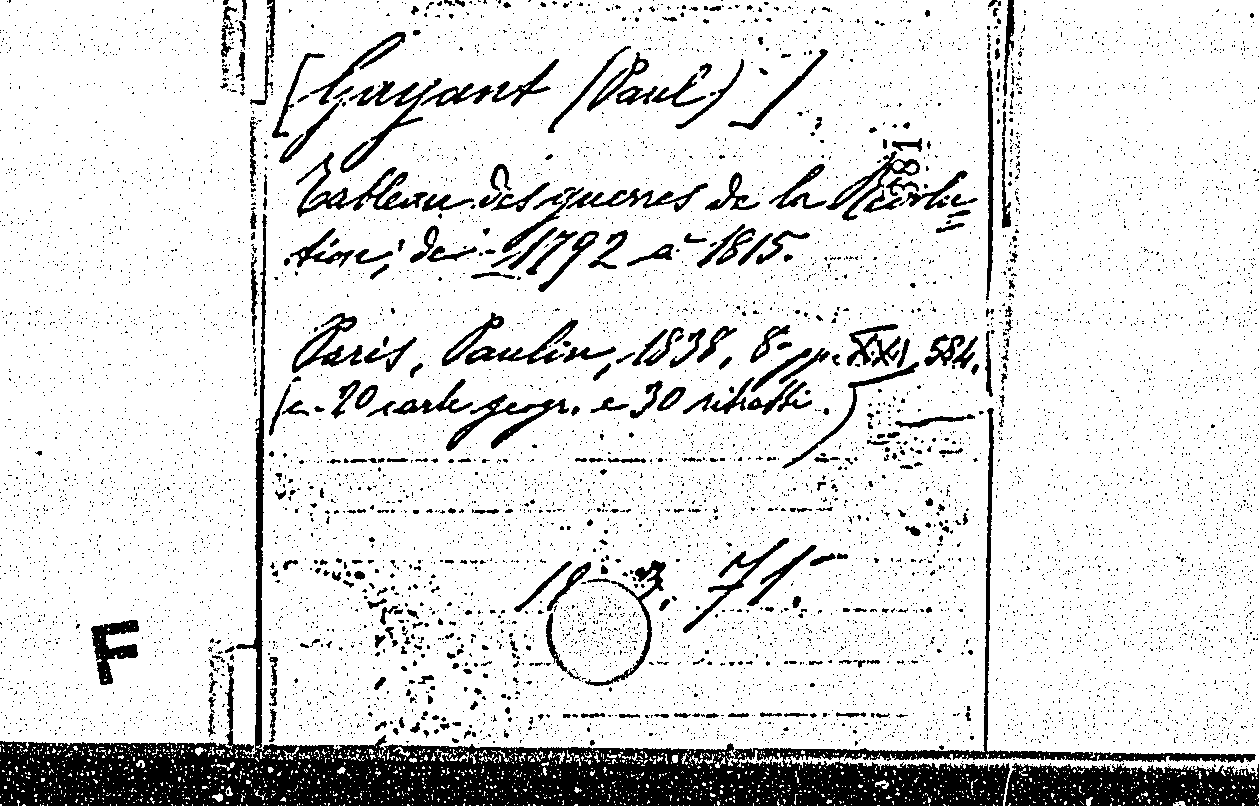 [Gayant (Paul)]
381
Tableau des guerres de la Révolu=
tion, de 1792 à 1815.
Paris, Paulin, 1838, 8° pp. XXI, 584.
(c. 20 carte geogr. e 30 ritratti.)
71.
F